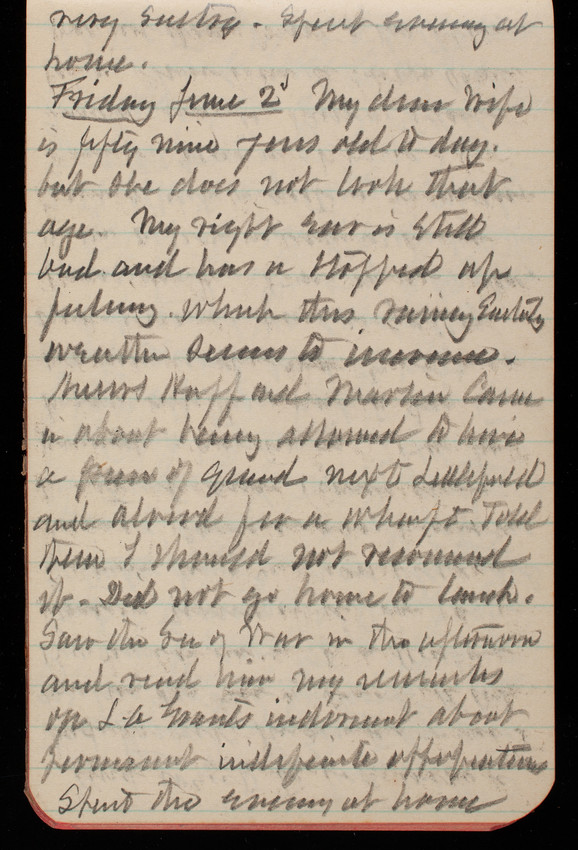 very sultry. Spent evening at
home.
Friday June 2d My dear Wife
is fifty nine years old to day.
but she does not look that
age. My right ear is still
bad and has a stopped up
feeling. which this rainy
weather seems to increase.
Messrs Huff and Martin came
in about being allowed to hire
a piece of ground next to Littlefield
and Alvord for a wharf. Told
them I should not recommend
it. Did not go home to lunch.
Saw the Sec of War in the afternoon
and read him my remarks
on L A Grants indorsement about
permanent indefinite appropriations
Spent the evening at home